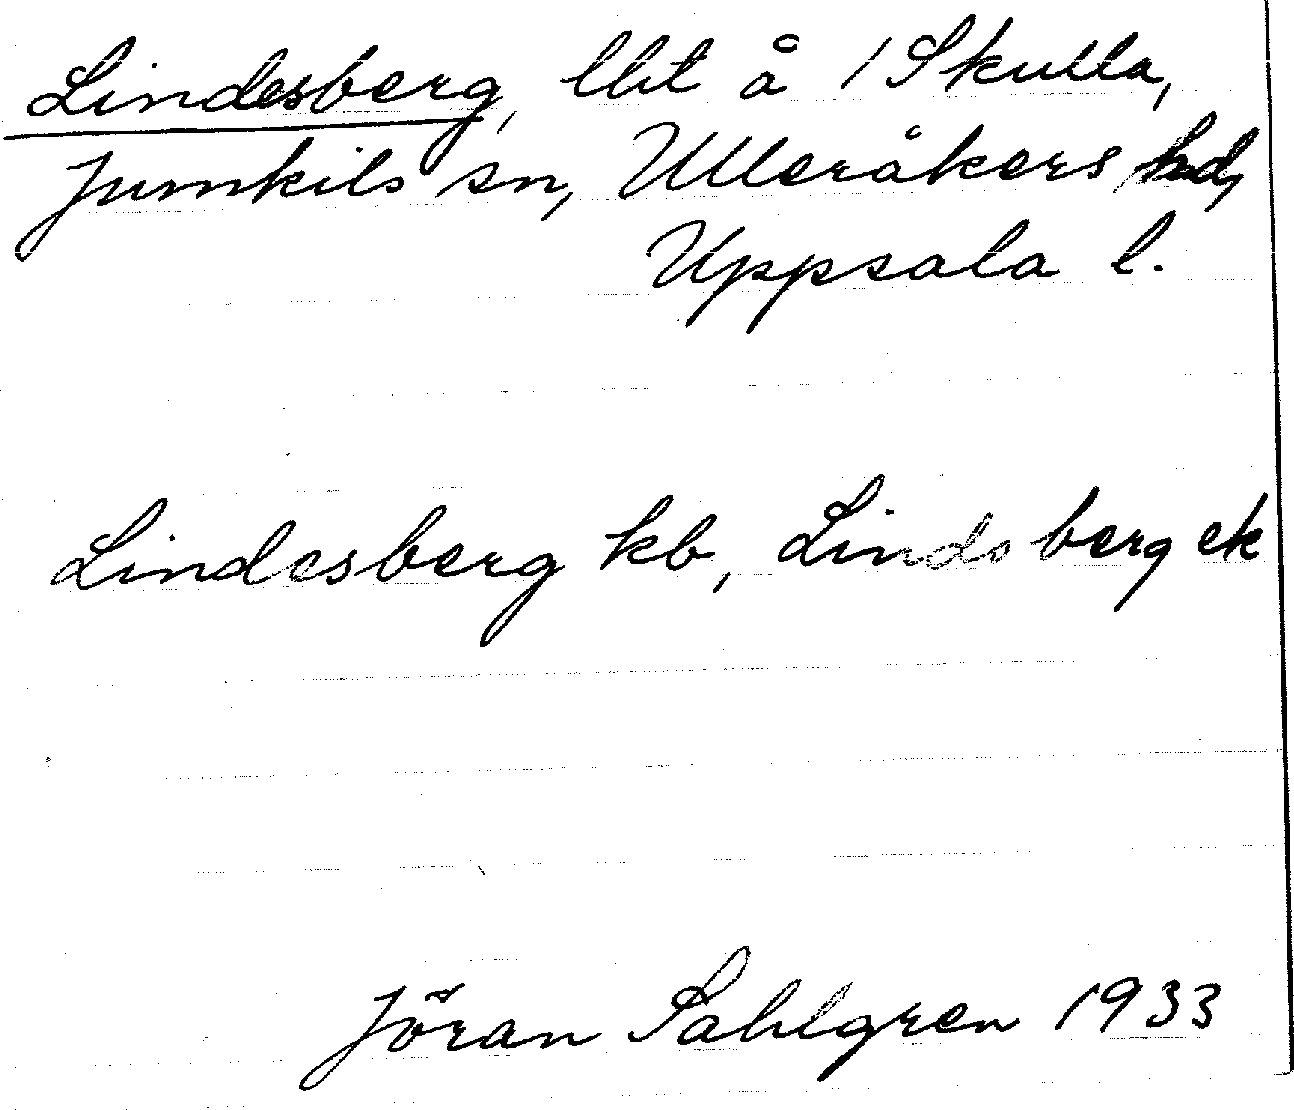 Lindesberg, lht å 1 Skulla,
Jumkils sn, Ulleråkers hd,
Uppsala l.
Lindesberg kb, Lindsberg ek
Jöran Sahlgren 1933